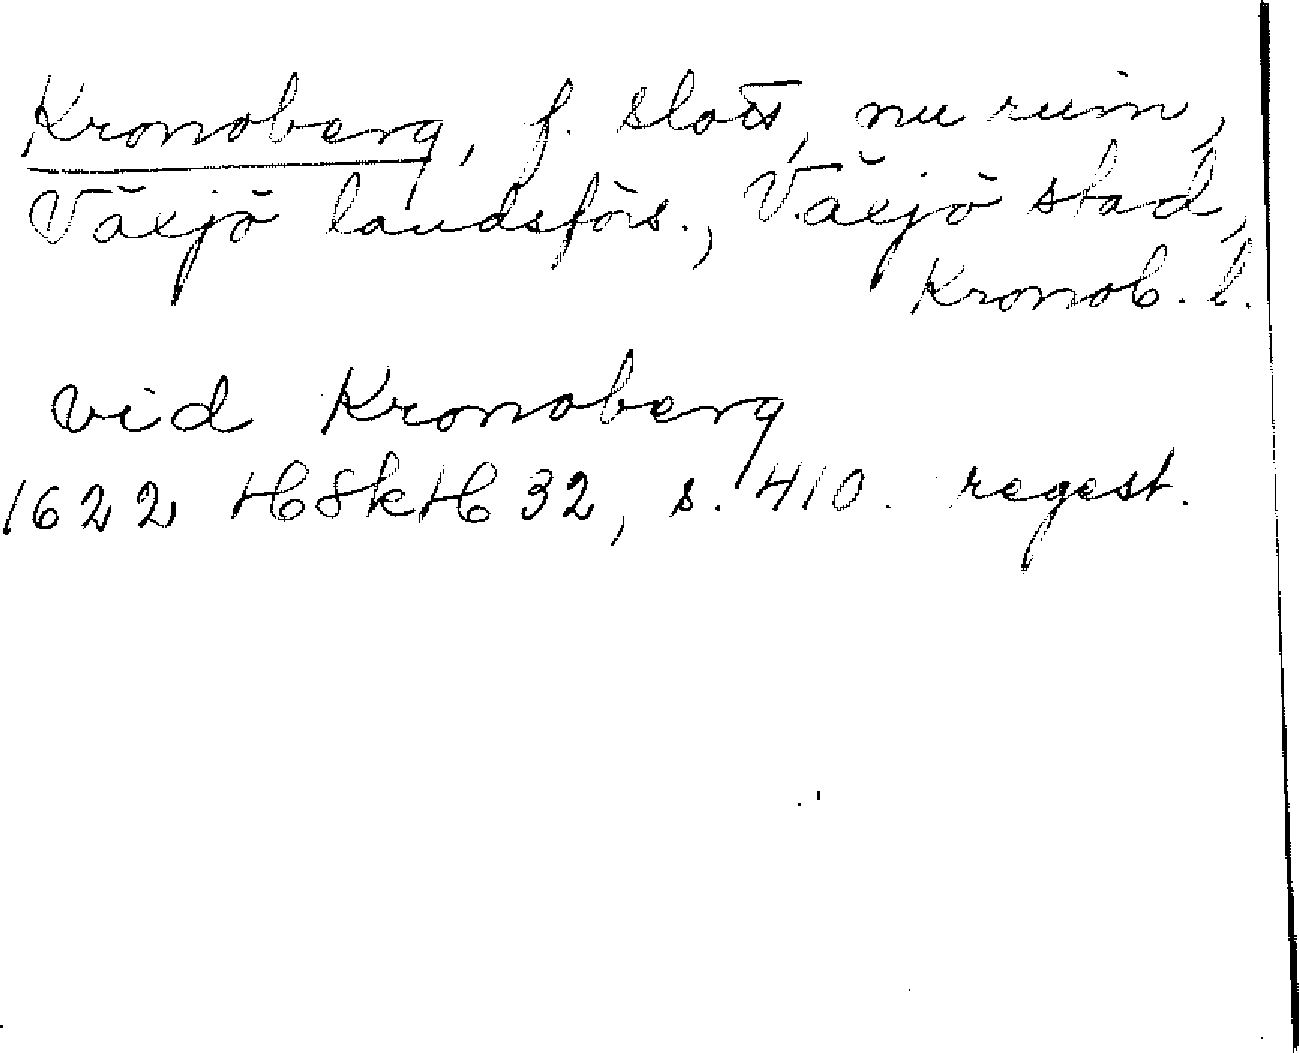 Kronoberg, f. slott, nu ruin,
Växjö landsförs., Växjö stad,
Kronob. l.
vid Kronoberg
1622 HSkH 32, s. 410. regest.